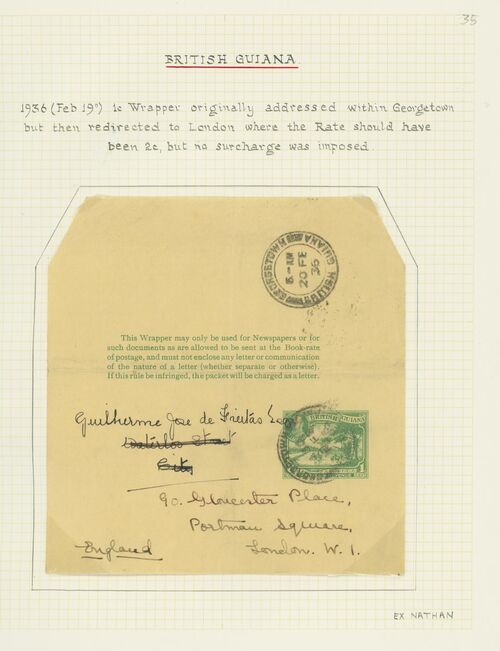 35
BRITISH GUIANA
1936 (Feb 19º) 1c Wrapper originally addressed within Georgetown
but then redirected to London where the Rate should have
been 2c, but no surcharge was imposed.
GEORGETOWN
BRITISH GUIANA
20 FE
36
This Wrapper may only be used for Newspapers or for
such documents as are allowed to be sent at the Book-rate
of postage, and must not enclose any letter or communication
of the nature of a letter (whether separate or otherwise).
If this rule be infringed, the packet will be charged as a letter.
Guilherme Jose de Freitas Esq
Waterloo Street
City
BRITISH GUIANA
1
90. Gloucester Place,
Portman Square,
England London. W. 1.
EX NATHAN